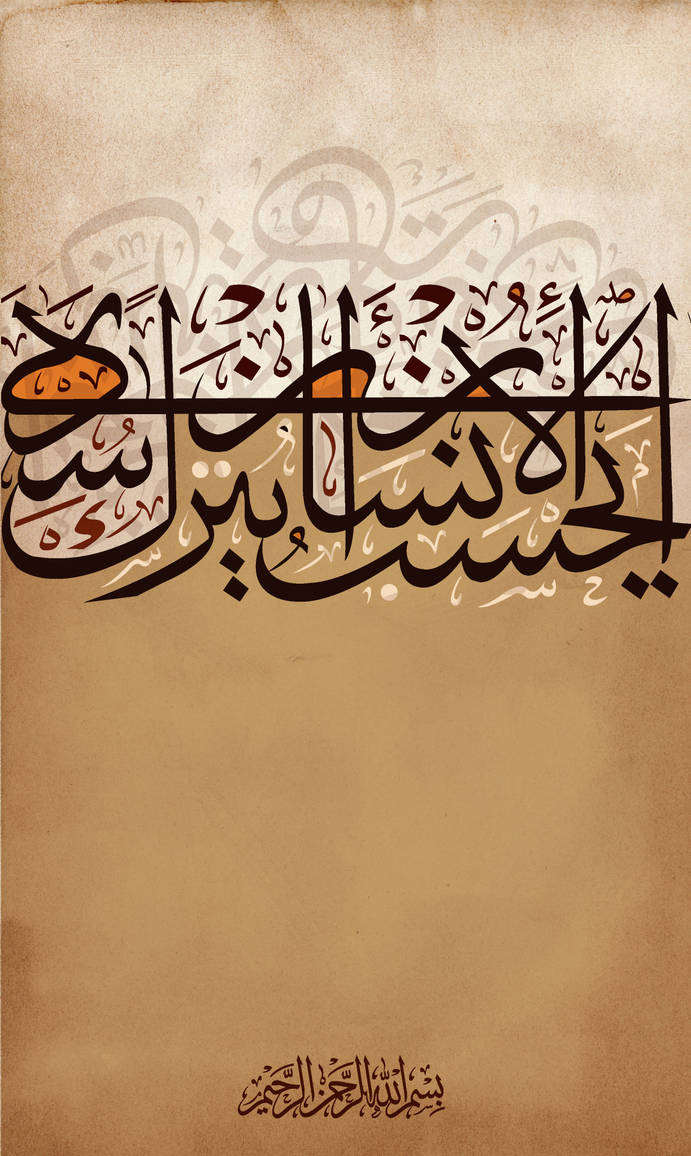 أَيَحْسَبُ الْإِنسَانُ أَن يُتْرَكَ سُدًى
بِسْمِ اللَّهِ الرَّحْمَٰنِ الرَّحِيمِ